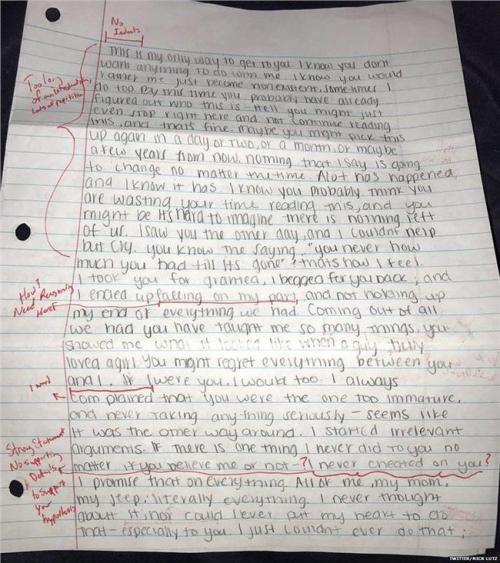 No
Indents
This is my only way to get to you I know you dont
want anything to do with me. I know you would
rather me just become nonexistent, sometimes I
do too. By this time you probably have already
figured out who this is - Hell you might just
even stop right here and not continue reading
this, and thats fine. maybe you might pick this
up again in a day or two, or a month, or maybe
a few years from now, nothing that I say is going
to change no matter the time. Alot has happened,
and I know it has I know you probably think you
are wasting your time reading this, and you
might be its hard to imagine there is nothing left
of us. I saw you the other day, and I couldnt help
but cry. you know the saying, "you never how
much you had till its gone" thats how I feel.
I took you for granted, I begged for you back, and
I ended up on my part, and not holding up
my end of everything we had coming out of all
we had you have taught me so many things, you
showed me what it looked like when a guy truly
loved a girl You might regret everything between you
and I. If I were you, I would too. I always
complained that you were the one too immature,
and never taking any-thing seriously - seems like
it was the other way around. I started irrelevant
arguments. If there is one thing I never did to you no
matter if you believe me or not - I never cheated on you
I promise that on everything. All of me, my mom,
my jeep. literally everything. I never thought
about it, nor could I ever put my heart to do
that - especially to you. I just couldnt ever do that,
Too long
of an
Lots of repetition
How?
Need Reasoning
Here!
Strong Statement
No supporting
Details
to support
your
hypothesis
TWITTER/NICK LUTZ